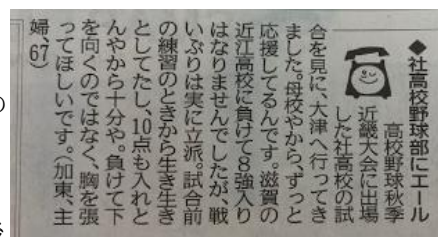 ◆社高校野球部にエール
高校野球秋季
近畿大会に出場
した社高校の試
合を見に、大津へ行ってき
ました。母校やから、ずっと
応援してるんです。滋賀の
近江高校に負けて8強入り
はなりませんでしたが、戦
いぶりは実に立派。試合前
の練習のときから生き生き
としてたし、10点も入れと
んやから十分や。負けて下
を向くのではなく、胸を張
ってほしいです。(加東、主
婦67)